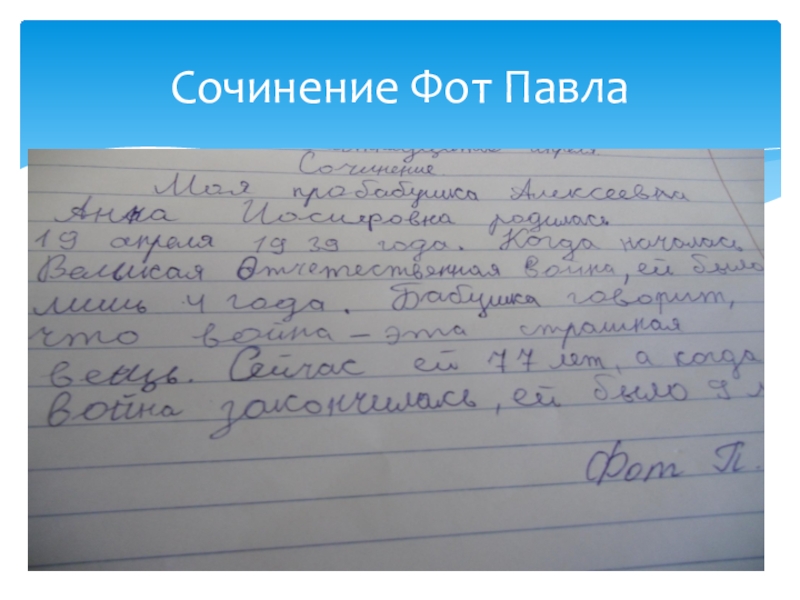 Сочинение Фот Павла
апреля
Сочинение
Моя прабабушка Алексеевна
Анна Иосифовна родилась
19 апреля 1939 года. Когда началась
Великая Отчетественная война, ей было
лишь 4 года. Бабушка говорит,
что война – эта страшная
вещь. Сейчас ей 77 лет, а когда
война закончилась, ей было 9 л
Фот П.